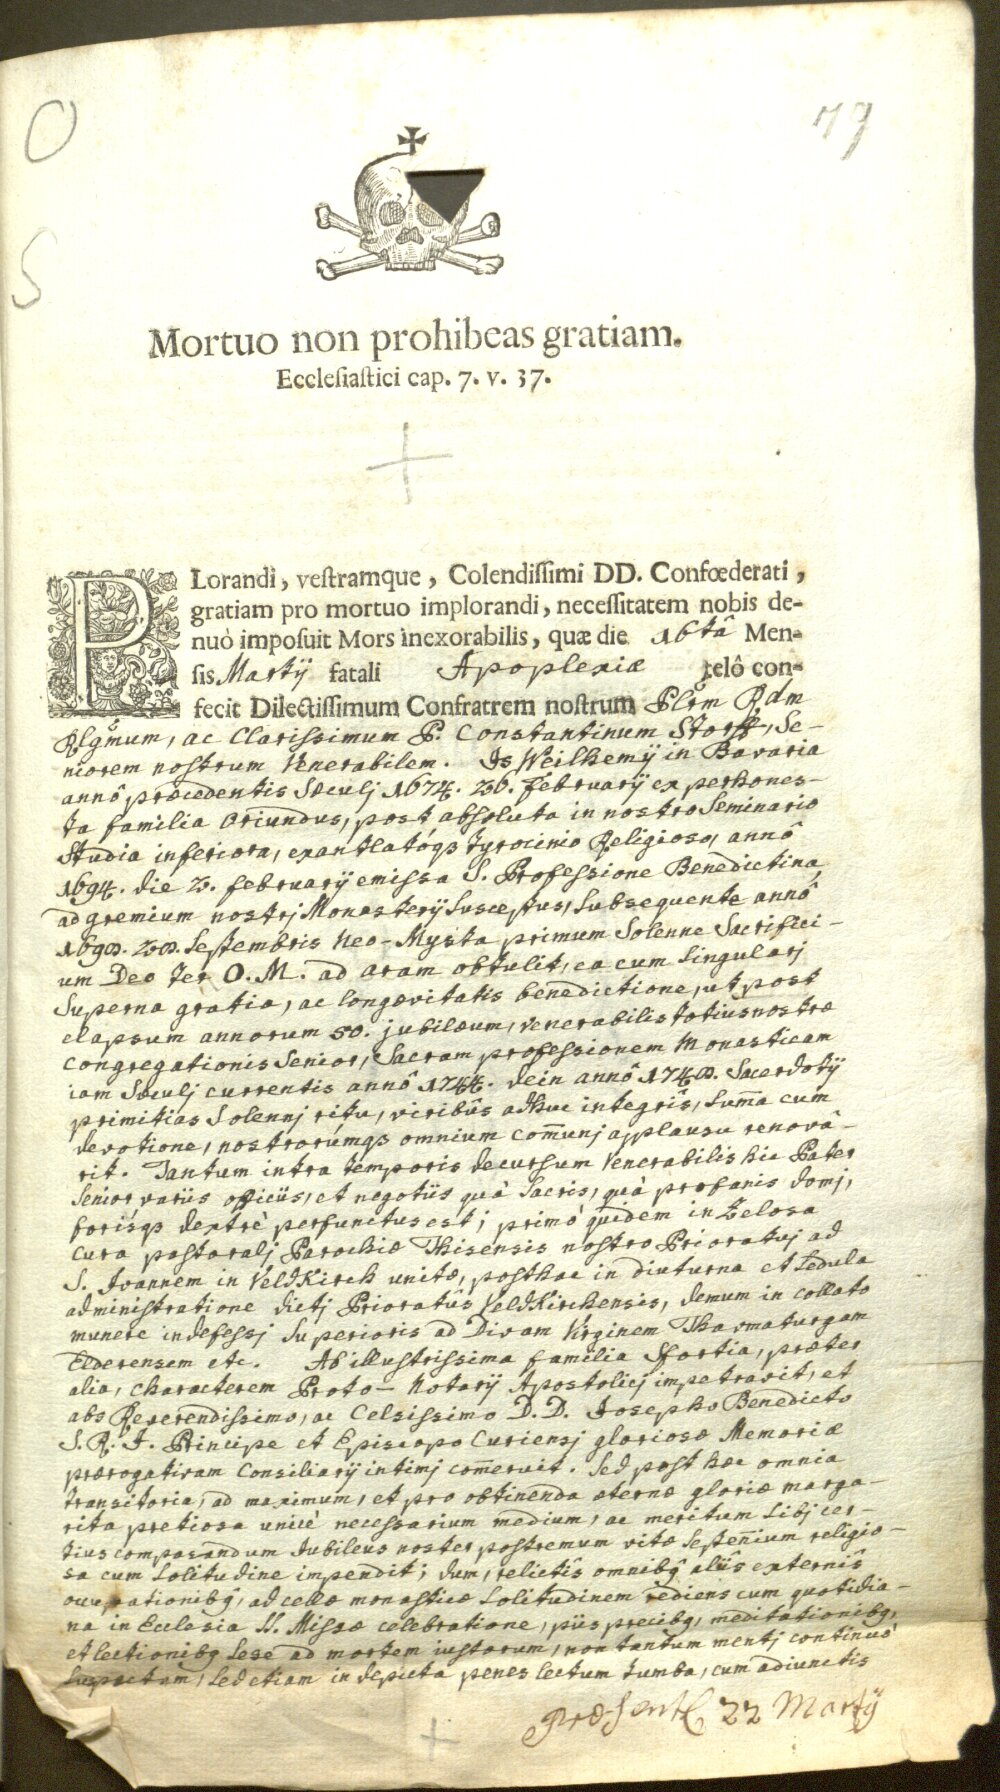 O
79
S
Mortuo non prohibeas gratiam.
Ecclesiastici cap. 7. v. 37.
PLorandi, vestramque, Colendissimi DD. Confœderati,
gratiam pro mortuo implorandi, necessitatem nobis de-
nuò imposuit Mors inexorabilis, quæ die 16tâ Men-
sis Martÿ fatali Apoplexiæ telô con-
fecit Dilectissimum Confratrem nostrum Plrm Rdm
Rlgm̃um, ac Clarissimum P. Constantinum Se-
niorem nostrum Venerabilem. Is Weilhemÿ in Bavaria
annô præcedentis Sæculj 1674. 26. februarÿ ex perhones-
ta familia oriundus, post absoluta in nostro Seminario
studia inferiora, exantlatóq3 tyrocinio Religioso, annô
1694. die 2. februarÿ emissa S. Professione Benedictina,
ad gremium nostrj Monasterÿ susceptus, subsequente annô
Septembris Neo-Mysta primum Solenne Sacrifici-
um Deo ter O. M. ad aram obtulit, ea cum singularj
superna gratia, ac longævitatis benedictione, ut post
elapsum annorum 50. jubilæum, venerabilis totius nostræ
congregationis Senior, Sacram professionem Monasticam
iam Sæculj currentis annô 1744. dein annô Sacerdotÿ
primitias Solennj ritu, viribûs adhuc integrîs, sum̃a cum
devotione, nostrorúmq3 omnium com̃unj applausu renovâ-
rit. Tantum intra temporis decursum Venerabilis hic Pater
Senior variis officiis, et negotiis quà Sacris, quà profanis domj,
forísq3 dextrè perfunctus est; primò quidem in Zelosa
cura pastoralj Parochiæ Thisensis nostro Prioratuj ad
S. Joannem in VeldKirch unitæ, posthac in diuturna et sedula
administratione dictj Prioratûs VeldKirchensis, demum in collato
munere indefessj Superioris ad Divam Virginem Thaumaturgam
Elderensem etc. Ab illustrissima familia Sfortia, præter
alia, characterem Proto-Notarÿ Apostolicj impetravit, et
abs Reverendissimo, ac Celsissimo D. D. Josepho Benedicto
S. R. J. Principe et Episcopo Curiensj gloriosæ Memoriæ
prærogativam Consiliarÿ intimj com̃eruit. Sed post hæc omnia
transitoria, ad maximum, et pro obtinenda æternæ gloriæ marga-
rita pretiosa unicè necessarium medium, ac meritum sibj cer-
tius comparandum Jubilæus noster postremum vitæ septen̄ium religio-
sa cum solitudine impendit; dum, relictîs omnibq̃ aliîs externîs
occupationibq̃, ad cellæ monasticæ solitudinem rediens cum quotidia-
na in Ecclesia SS. Missæ celebratione, piis precibq̃, meditationibq̃,
et lectionibq̃ sese ad mortem iustorum, non tantum mentj continuò
sed etiam in depicta penes lectum tumba, cum adiunctis
22 Martÿ